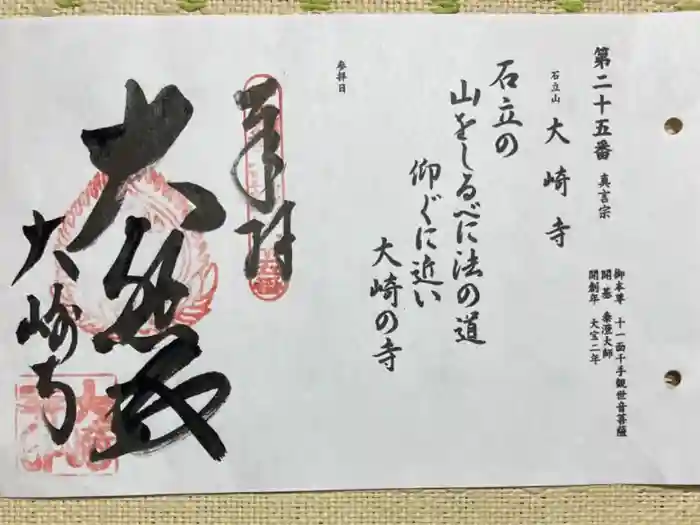 第二十五番 真言宗
石立山 大崎寺
御本尊 十一面千手観世音菩薩
開基 泰澄大師
開創年 大宝二年
石立の
山をしるべに法の道
仰ぐに近い
大崎の寺
参拝日
奉拝
大悲殿
大崎寺